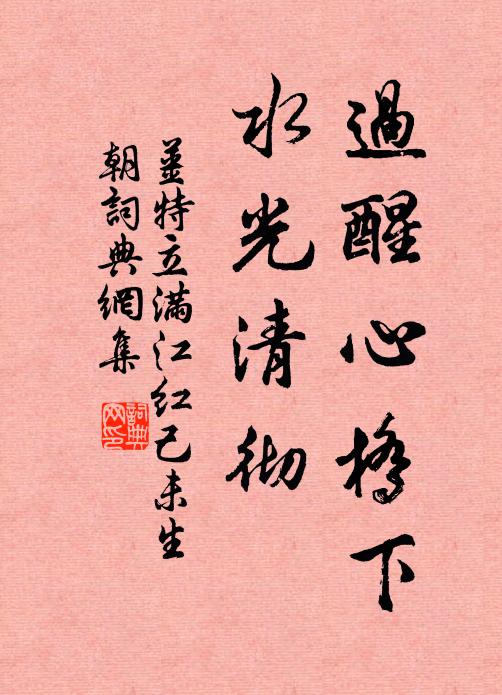 過醒心橋下
水光清彻
姜特立滿江红己未生
朝詞典網集
詞典
网印